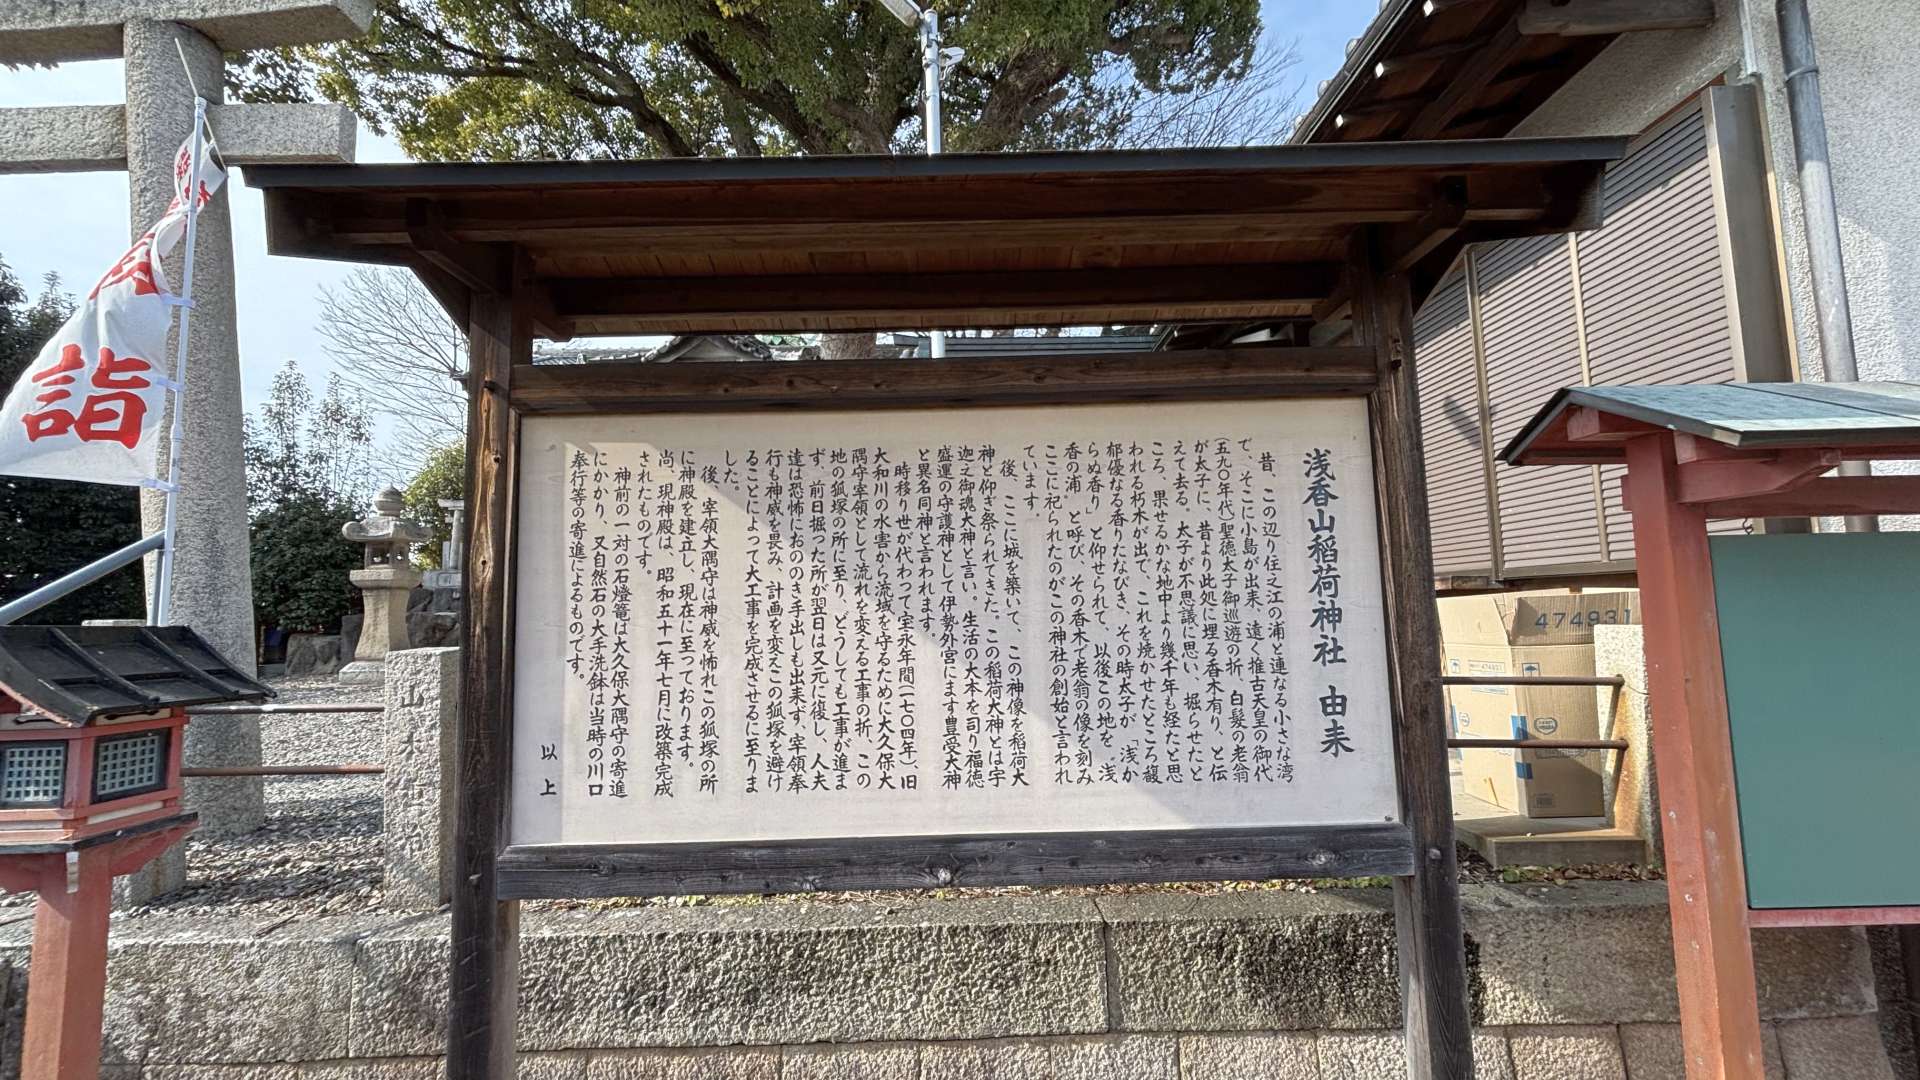 浅香山稲荷神社 由来
昔、この辺り住之江の浦と連なる小さな湾
で、そこに小島が出来、遠く推古天皇の御代
(五九〇年代)聖徳太子御巡遊の折、白髪の老翁
が太子に、昔より此処に埋る香木有り、と伝
えて去る、太子が不思議に思い、掘らせたと
ころ、果せるかな地中より幾千年も経たと思
われる朽木が出て、これを焼かせたところ馥
郁優なる香りたなびき、その時太子が「浅か
らぬ香り」と仰せられて、以後この地を〝浅
香の浦〟と呼び、その香木で老翁の像を刻み
ここに祀られたのがこの神社の創始と言われ
ています。
後、ここに城を築いて、この神像を稲荷大
神と仰ぎ祭られてきた。この稲荷大神とは宇
迦之御魂大神と言い、生活の大本を司り福徳
盛運の守護神として伊勢外宮にます豊受大神
と異名同神と言われます。
時移り世が代わって宝永年間(一七〇四年)、旧
大和川の水害から流域を守るために大久保大
隅守宰領として流れを変える工事の折、この
地の狐塚の所に至り、どうしても工事が進ま
ず、前日掘った所が翌日は又元に復し、人夫
達は恐怖におののき手出しも出来ず、宰領奉
行も神威を畏み、計画を変えこの狐塚を避け
ることによって大工事を完成させるに至りま
した。
後、宰領大隅守は神威を怖れこの狐塚の所
に神殿を建立し、現在に至っております。
尚、現神殿は、昭和五十一年七月に改築完成
されたものです。
神前の一対の石燈篭は大久保大隅守の寄進
にかかり、又自然石の大手洗鉢は当時の川口
奉行等の寄進によるものです。
以上
詣
474931